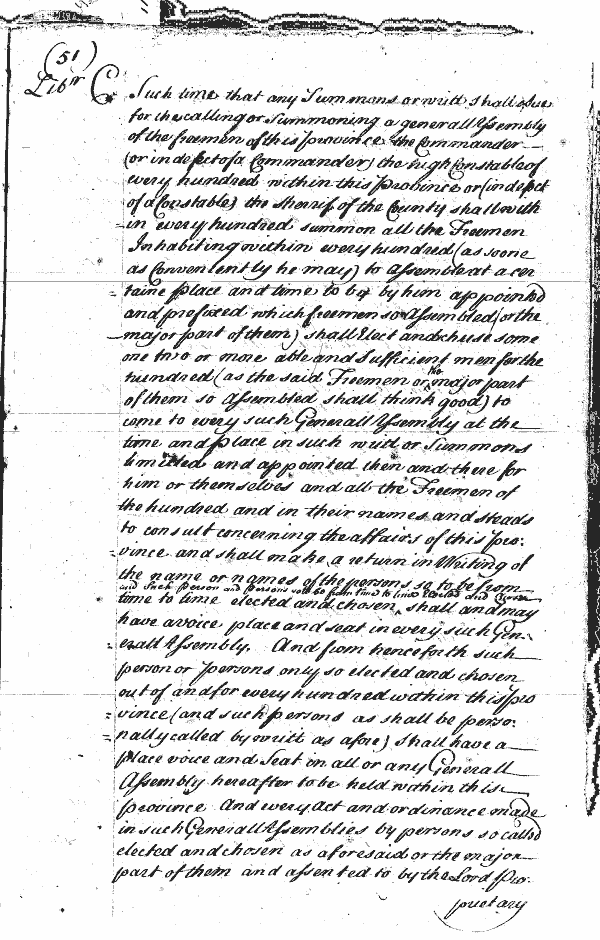 (51)
Libr C
Such time that any Summons or writt shall issue
for the calling or Summoning a generall Assembly
of the freemen of this province the Commander
(or in defect of a Commander) the high Constable of
every hundred within this Province or (in defect
of a Constable) the Sherrif of the County shall with
in every hundred summon all the Freemen
Inhabiting within every hundred (as soone
as Conveniently he may) to Assemble at a cer
taine place and time to be by him appointed
and prefixed which freemen so Assembled (or the
major part of them) shall Elect and chuse some
one two or more able and Sufficient men for the
hundred (as the said Freemen or the major part
of them so Assembled shall think good) to
come to every such Generall Assembly at the
time and place in such writ or Summons
limitted and appointed then and there for
him or themselves and all the Freemen of
the hundred and in their names and steads
to consult concerning the affairs of this Pro:
vince and shall make a return in Writing of
the name or names of the persons so to be from
and such Person and Persons soe to be from time to time Elected and Chosen
time to time elected and chosen shall and may
have a voice place and seat in every such Gen
erall Assembly. And from henceforth such
person or persons only so elected and chosen
out of and for every hundred within this Pro
vince (and such persons as shall be perso:
nally called by writt as afore) shall have a
place voice and Seat in all or any Generall
Assembly hereafter to be held within this
province And every Act and ordinance made
in such Generall Assemblies by persons so called
elected and chosen as aforesaid or the major
part of them and assented to by the Lord Pro
prietary